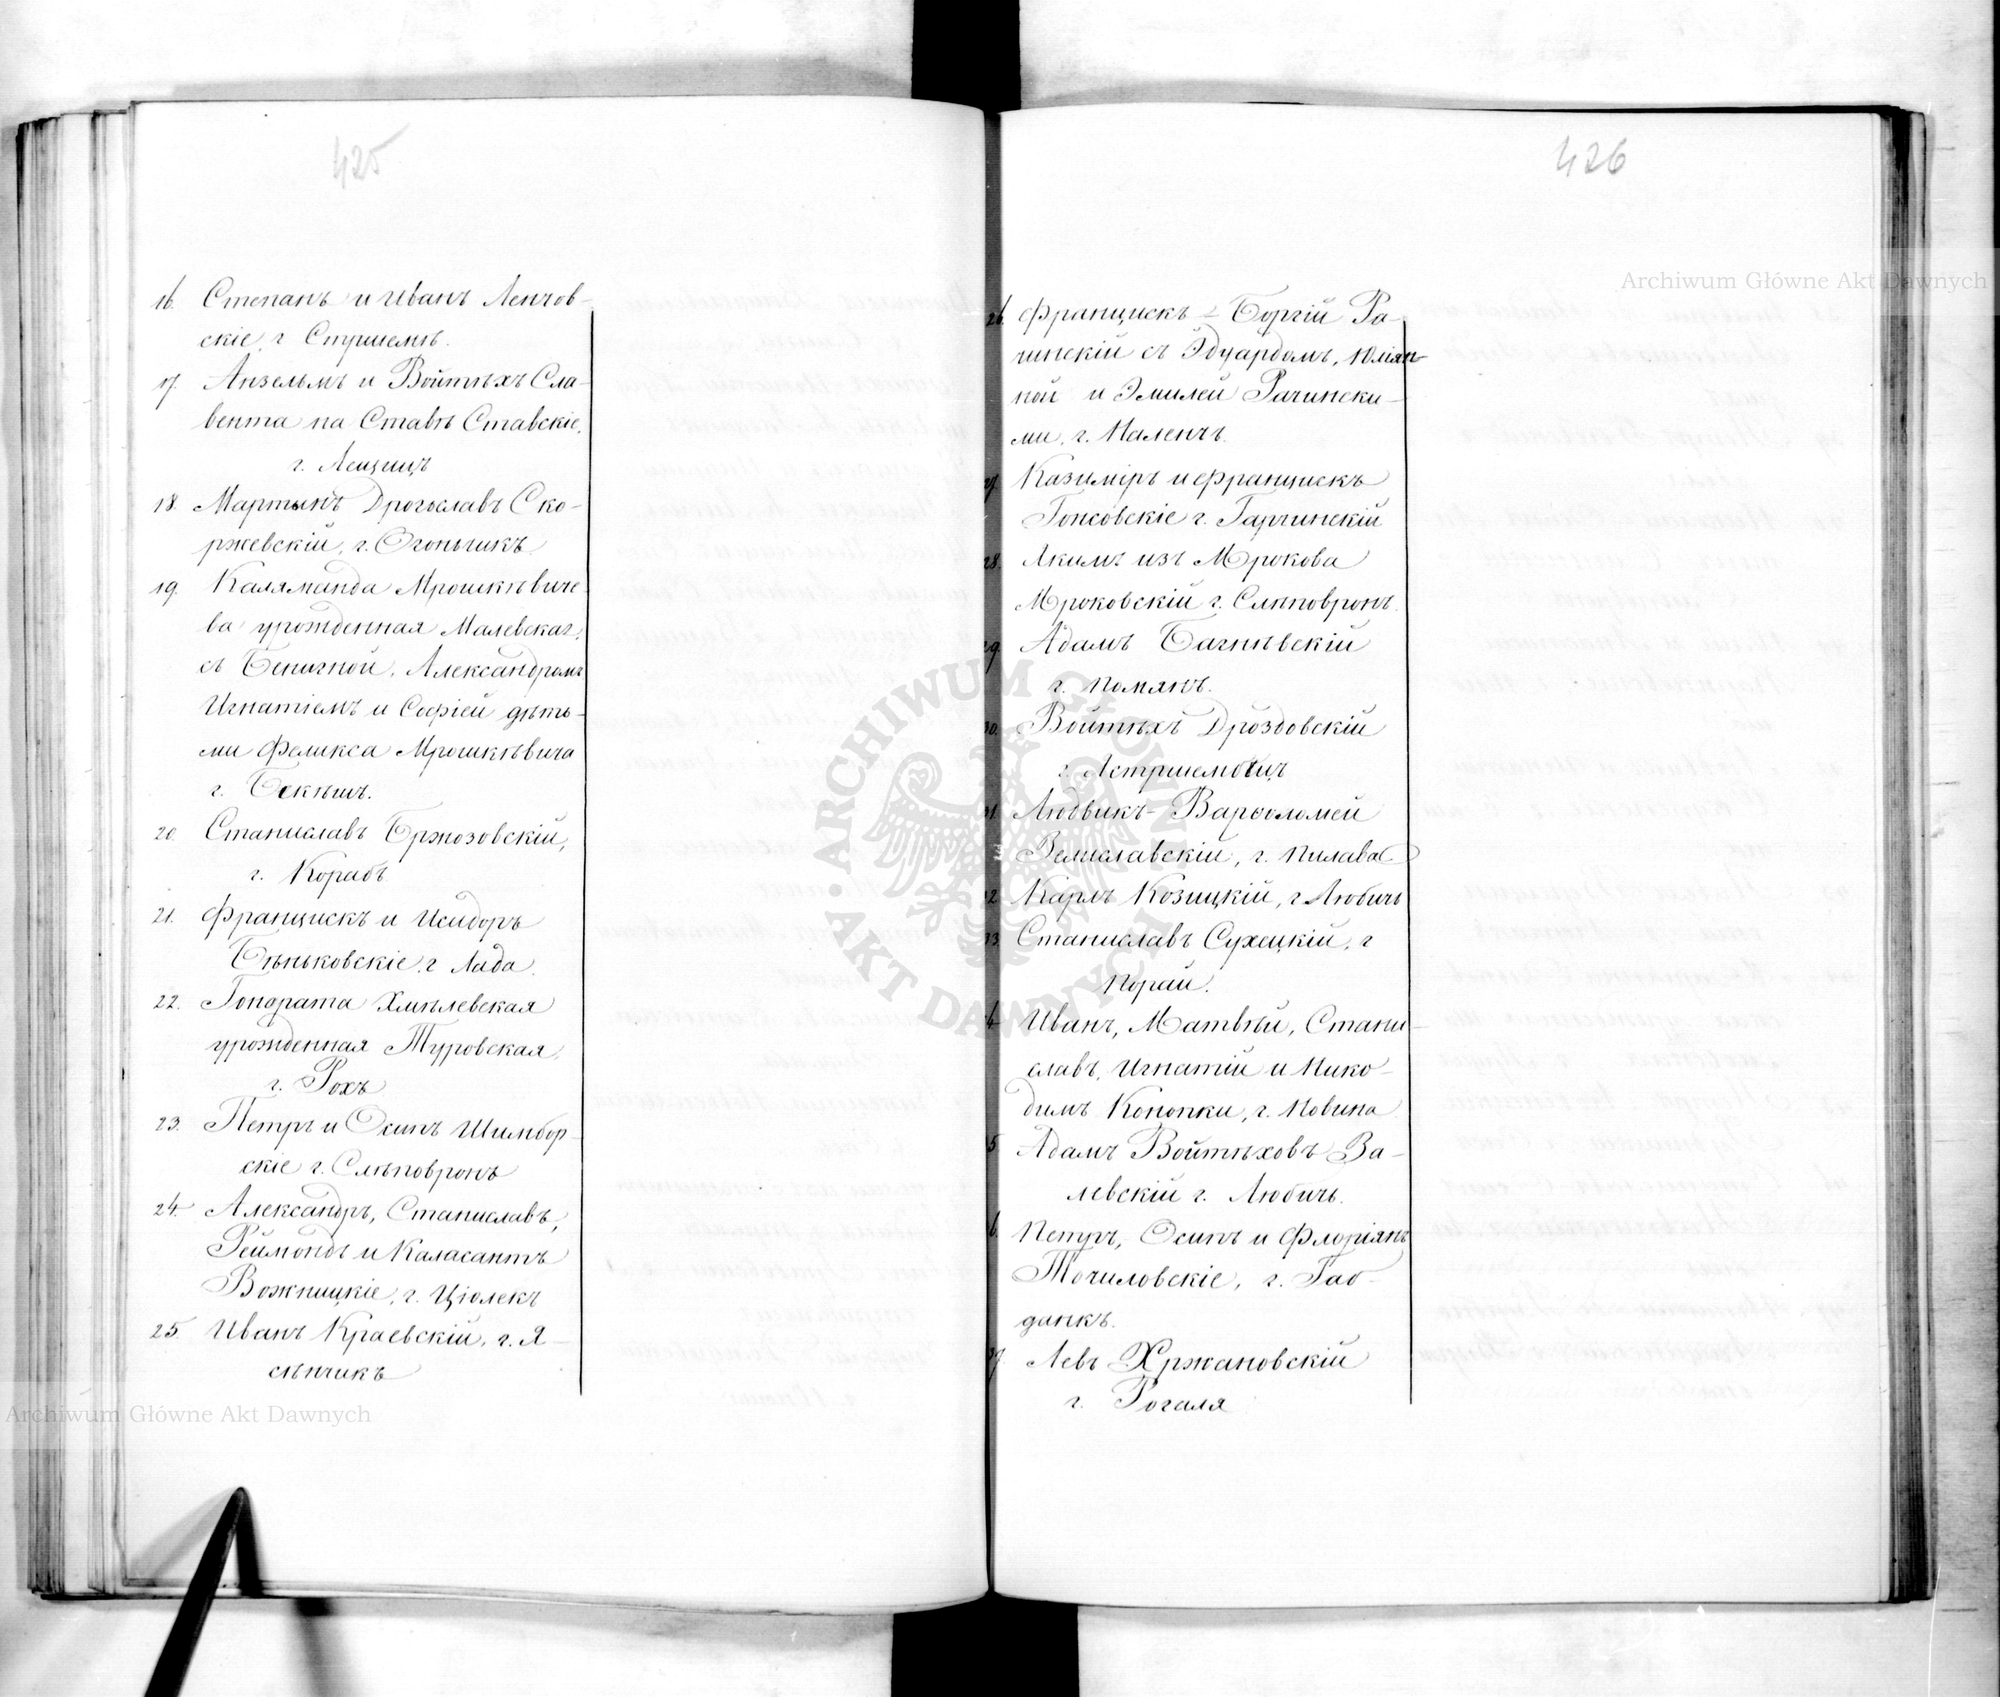 425
16. Степанъ и Иванъ Ленчов-
скіе, г. Стршемѣ.
17. Анзельмъ и Войтѣхъ Сла-
вента на Ставѣ Ставскіе,
г. Лещицъ
18. Мартынъ Дрогославъ Ско-
ржевскій, г. Огоньчикъ
19. Каляманда Мрошкѣвиче-
ва урожденная Малевская,
съ Бенигной, Александромъ
Игнатіемъ и Софіей дѣть-
ми Феликса Мрошкѣвича
г. Бекѣшъ.
20. Станиславъ Бржозовскій,
г. Корабъ
21. Францискъ и Исидоръ
Бѣньковскіе, г. Лада.
22. Гонората Хмѣлевская
урожденная Туровская,
г. Рохъ
23. Петръ и Осипъ Шимбор-
скіе г. Слѣповронъ
24. Александръ, Станиславъ,
Реймондъ и Каласантъ
Вожницкіе, г. Ціолекъ
25. Иванъ Краевскій, г. Я-
сѣнчикъ
426
26. Францискъ-Боргій Ра-
чинскій съ Эдуардомъ, Юліян-
ной и Эмилей Рачински-
ми, г. Наленчъ.
27. Казиміръ и Францискъ
Гонсовскіе г. Гарчинскій
28. Якимъ изъ Мрокова
Мроковскій г. Слѣповронъ.
29. Адамъ Багнѣвскій
г. Помянъ.
30. Войтѣхъ Дроздовскій
г. Ястршемبецъ
31. Людвикъ-Варѳоломей
Велиславскій, г. Пилава
32. Карлъ Козицкій, г. Любичъ
33. Станиславъ Сухецкій, г.
Порай.
4. Иванъ, Матвѣй, Стани-
славъ, Игнатій и Нико-
димъ Конопки, г. Новина
5. Адамъ Войтѣховъ За-
левскій г. Любичъ.
6. Петръ, Осипъ и Флоріянъ
Точиловскіе, г. Габ-
данкъ.
37. Левъ Хржановскій
г. Рогаля
Archiwum Główne Akt Dawnych
Archiwum Główne Akt Dawnych
ARCHIWUM GŁÓWNE AKT DAWNYCH